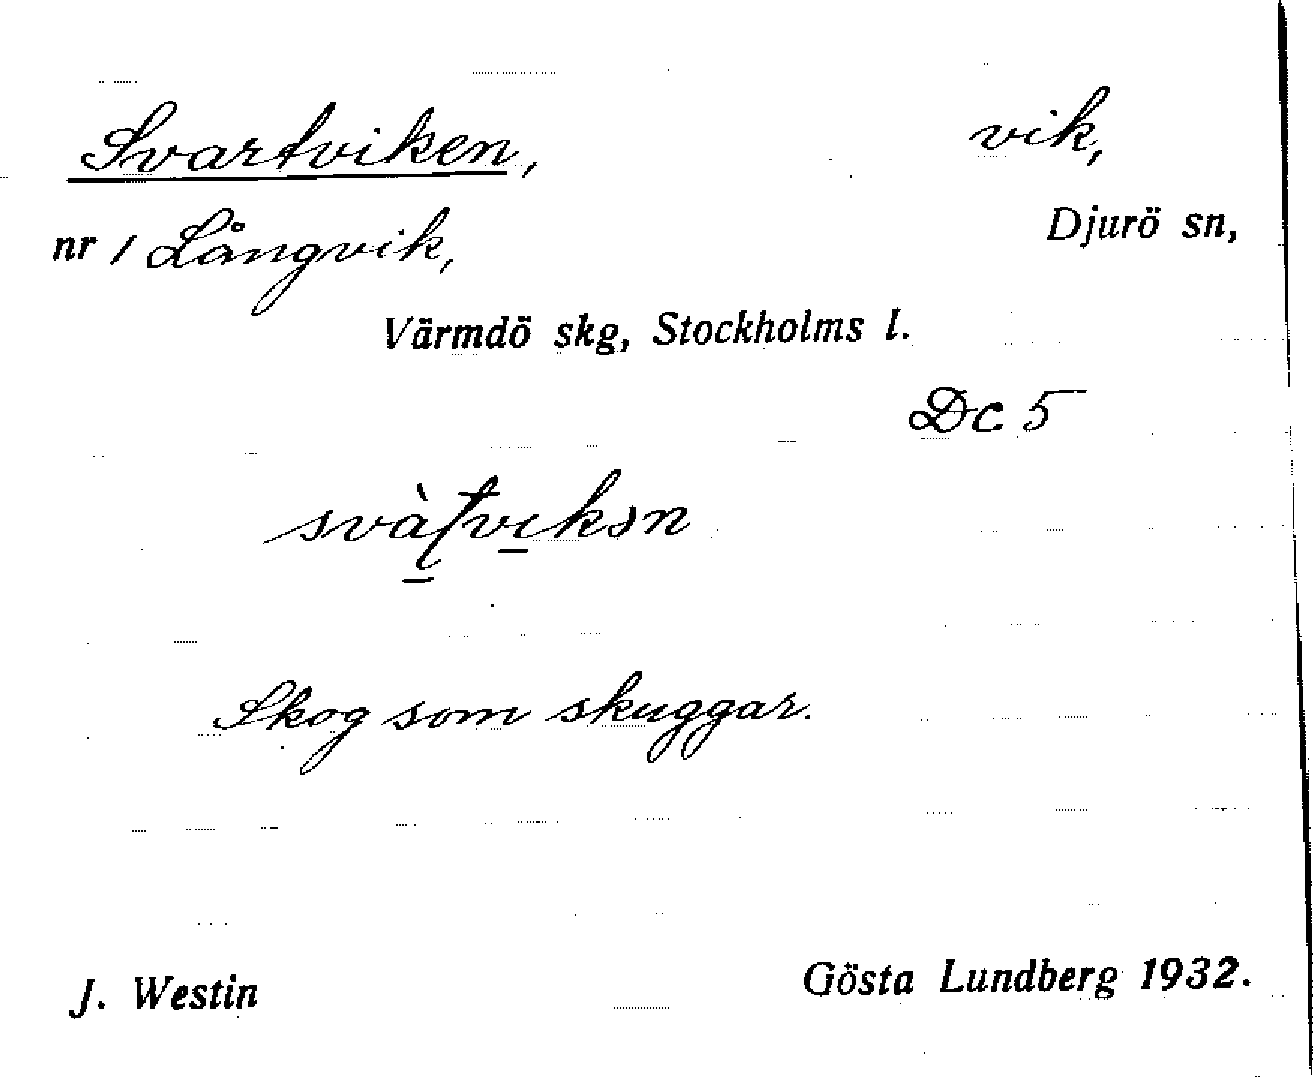 Svartviken, vik,
nr 1 Långvik, Djurö sn,
Värmdö skg, Stockholms l.
Dc 5
Skog som skuggar.
J. Westin Gösta Lundberg 1932.